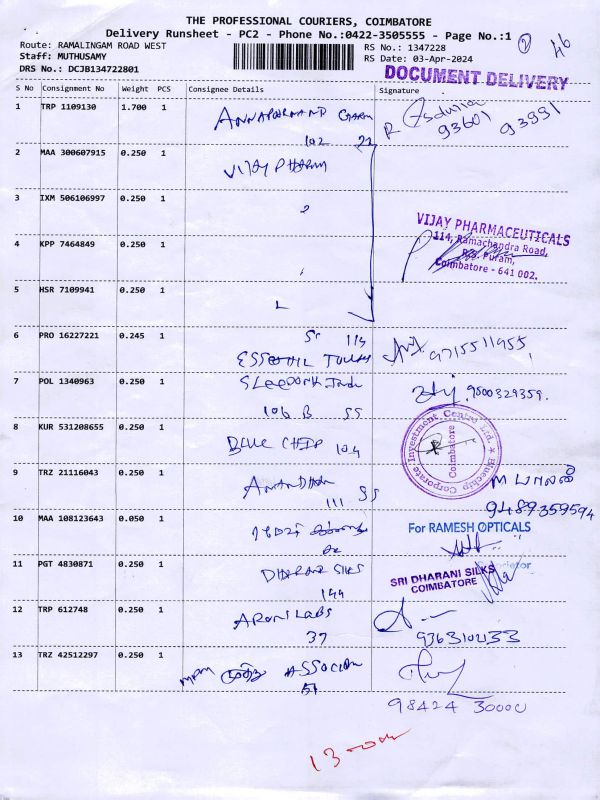 THE PROFESSIONAL COURIERS, COIMBATORE
Delivery Runsheet - PC2 - Phone No.:0422-3505555 - Page No.:1
Route: RAMALINGAM ROAD WEST
RS No.: 1347228
Staff: MUTHUSAMY
RS Date: 03-Apr-2024
DRS No.: DCJB134722801
DOCUMENT DELIVERY
S No Consignment No Weight PCS Consignee Details Signature
1 TRP 1109130 1.700 1 ANNAPOORNAND
102 22
R 93601 93991
2 MAA 300607915 0.250 1 VIJAY PHARM
3 IXM 506106997 0.250 1
VIJAY PHARMACEUTICALS
114, Ramachandra Road,
R.S. Puram,
Coimbatore - 641 002.
4 KPP 7464849 0.250 1
5 HSR 7109941 0.250 1
6 PRO 16227221 0.245 1 115
9715511955
7 POL 1340963 0.250 1
106 B SS
9500329359.
8 KUR 531208655 0.250 1 BLUE CHIP 104
Bluechip Corporate Investment Centre Ltd. ★
Coimbatore
9 TRZ 21116043 0.250 1
111 SS
9489359594
10 MAA 108123643 0.050 1
For RAMESH OPTICALS
Proprietor
11 PGT 4830871 0.250 1 DHARANI SILKS
144
SRI DHARANI SILKS
COIMBATORE
12 TRP 612748 0.250 1 ARONI LABS
37
9363102133
13 TRZ 42512297 0.250 1 ASSOCIAN
51
98424 30000
13